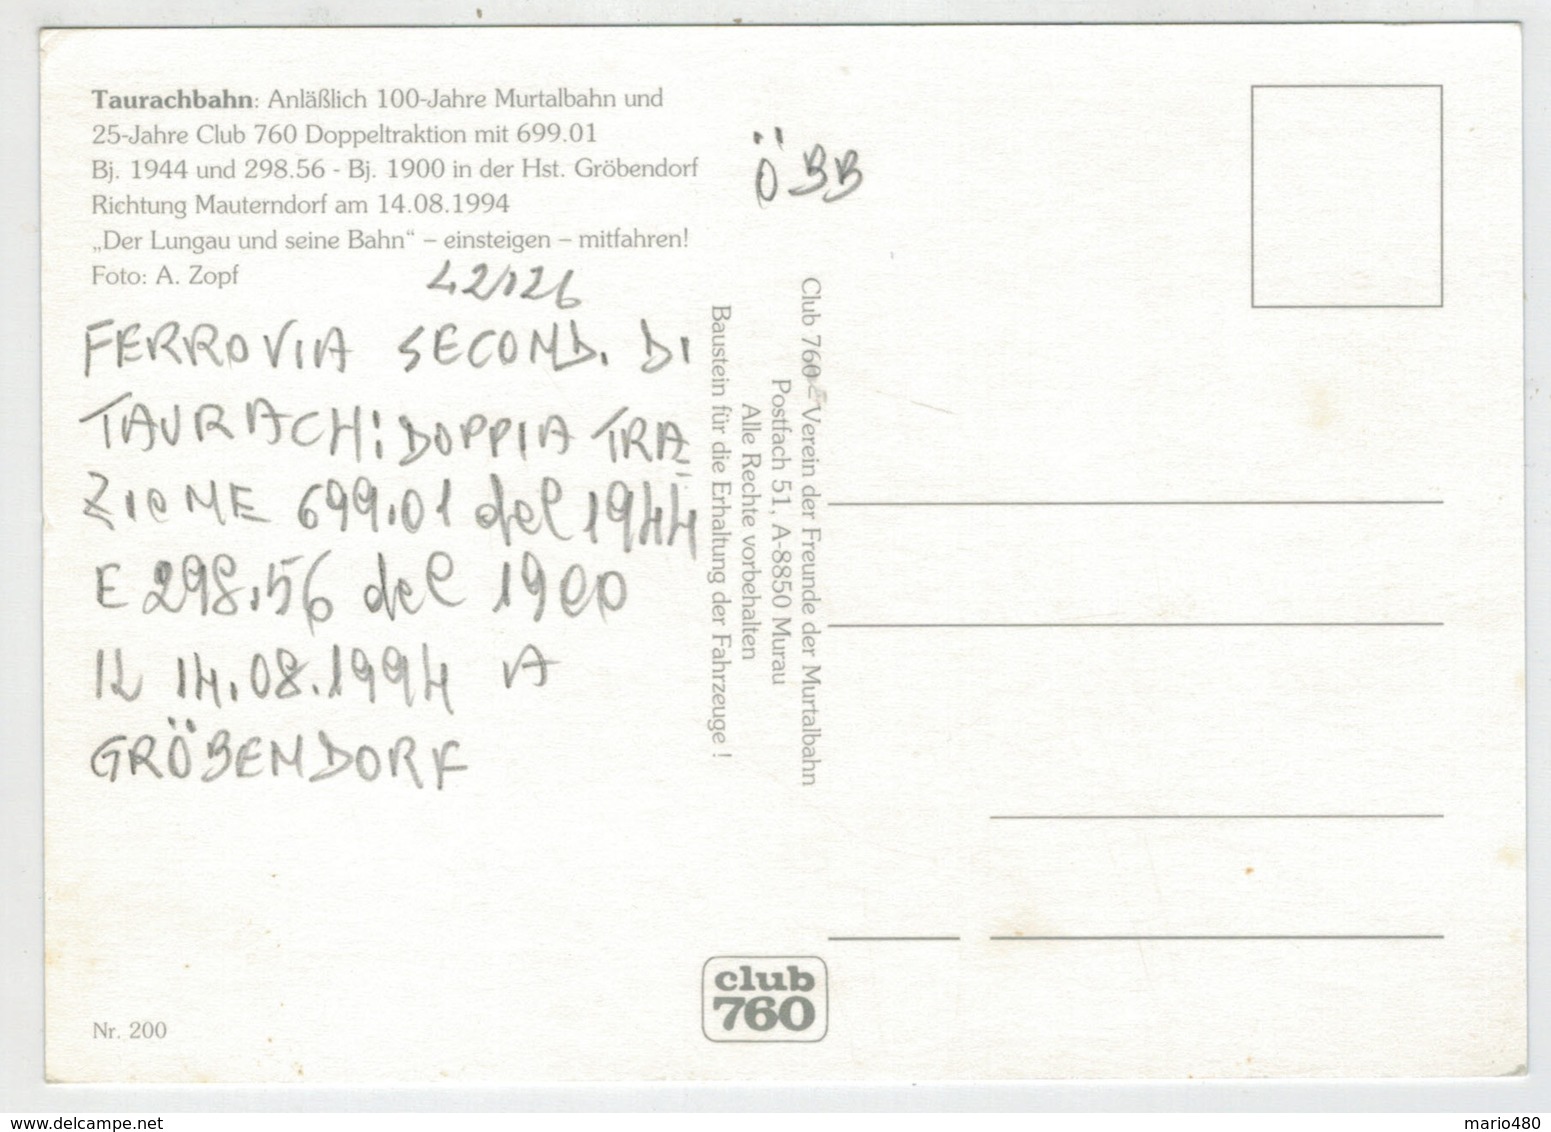 Taurachbahn: Anläßlich 100-Jahre Murtalbahn und
25-Jahre Club 760 Doppeltraktion mit 699.01
Bj. 1944 und 298.56 - Bj. 1900 in der Hst. Gröbendorf
Richtung Mauterndorf am 14.08.1994
„Der Lungau und seine Bahn“ – einsteigen – mitfahren!
Foto: A. Zopf
ÖBB
FERROVIA SECOND. DI
TAURACH: DOPPIA TRA
ZIONE 699.01 del 1944
E 298.56 del 1900
IL 14.08.1994 A
GRÖBENDORF
Club 760 – Verein der Freunde der Murtalbahn
Postfach 51, A-8850 Murau
Alle Rechte vorbehalten
Baustein für die Erhaltung der Fahrzeuge !
club
760
Nr. 200
www.delcampe.net
mario480